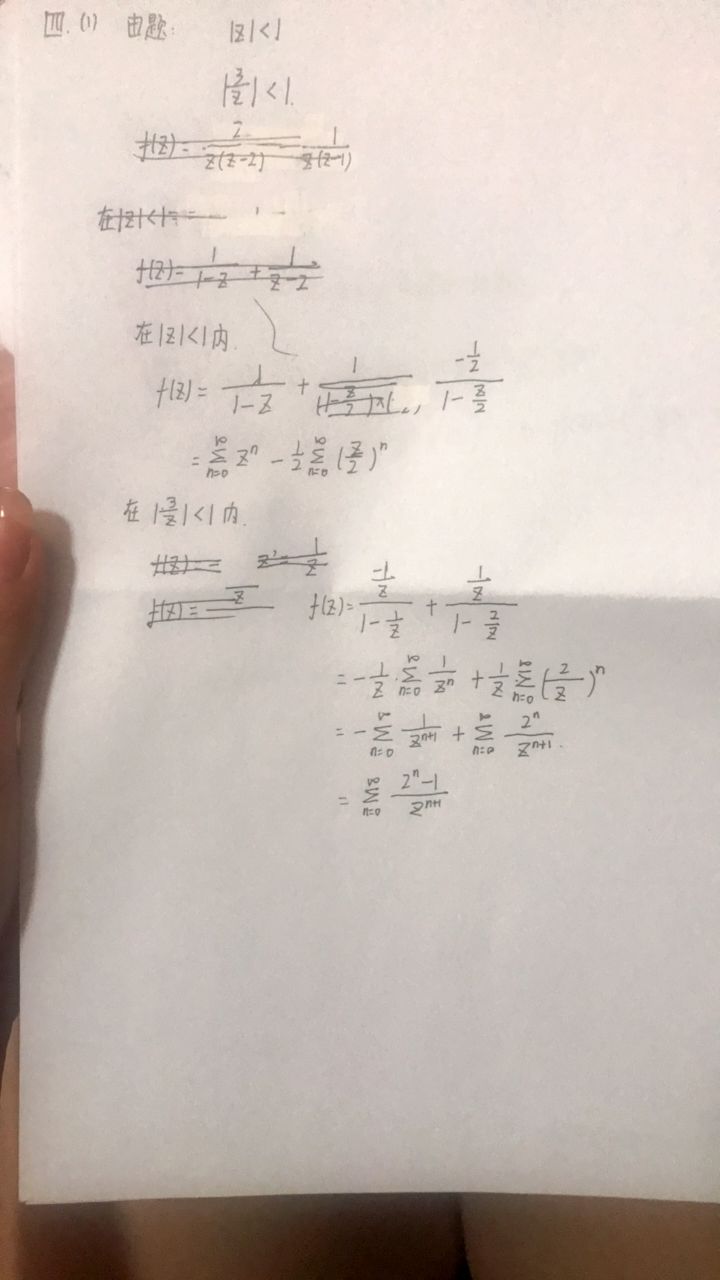 四.(1) 由题: |z|<1
|3/z|<1.
f(z)= 2/(z(z-2)) - 1/(z(z-1))
在|z|<1
f(z)= 1/(1-z) + 1/(z-2)
在|z|<1内.
f(z)= 1/(1-z) + (-1/2)/(1-z/2)
= ∑_{n=0}^{∞} z^n - 1/2 ∑_{n=0}^{∞} (z/2)^n
在|3/z|<1内.
f(z)= z'=1/z
f(z)= f(z)= (-1/z)/(1-1/z) + (1/z)/(1-2/z)
= -1/z·∑_{n=0}^{∞} 1/z^n + 1/z ∑_{n=0}^{∞} (2/z)^n
= -∑_{n=0}^{∞} 1/z^{n+1} + ∑_{n=0}^{∞} 2^n/z^{n+1}.
= ∑_{n=0}^{∞} (2^n-1)/z^{n+1}